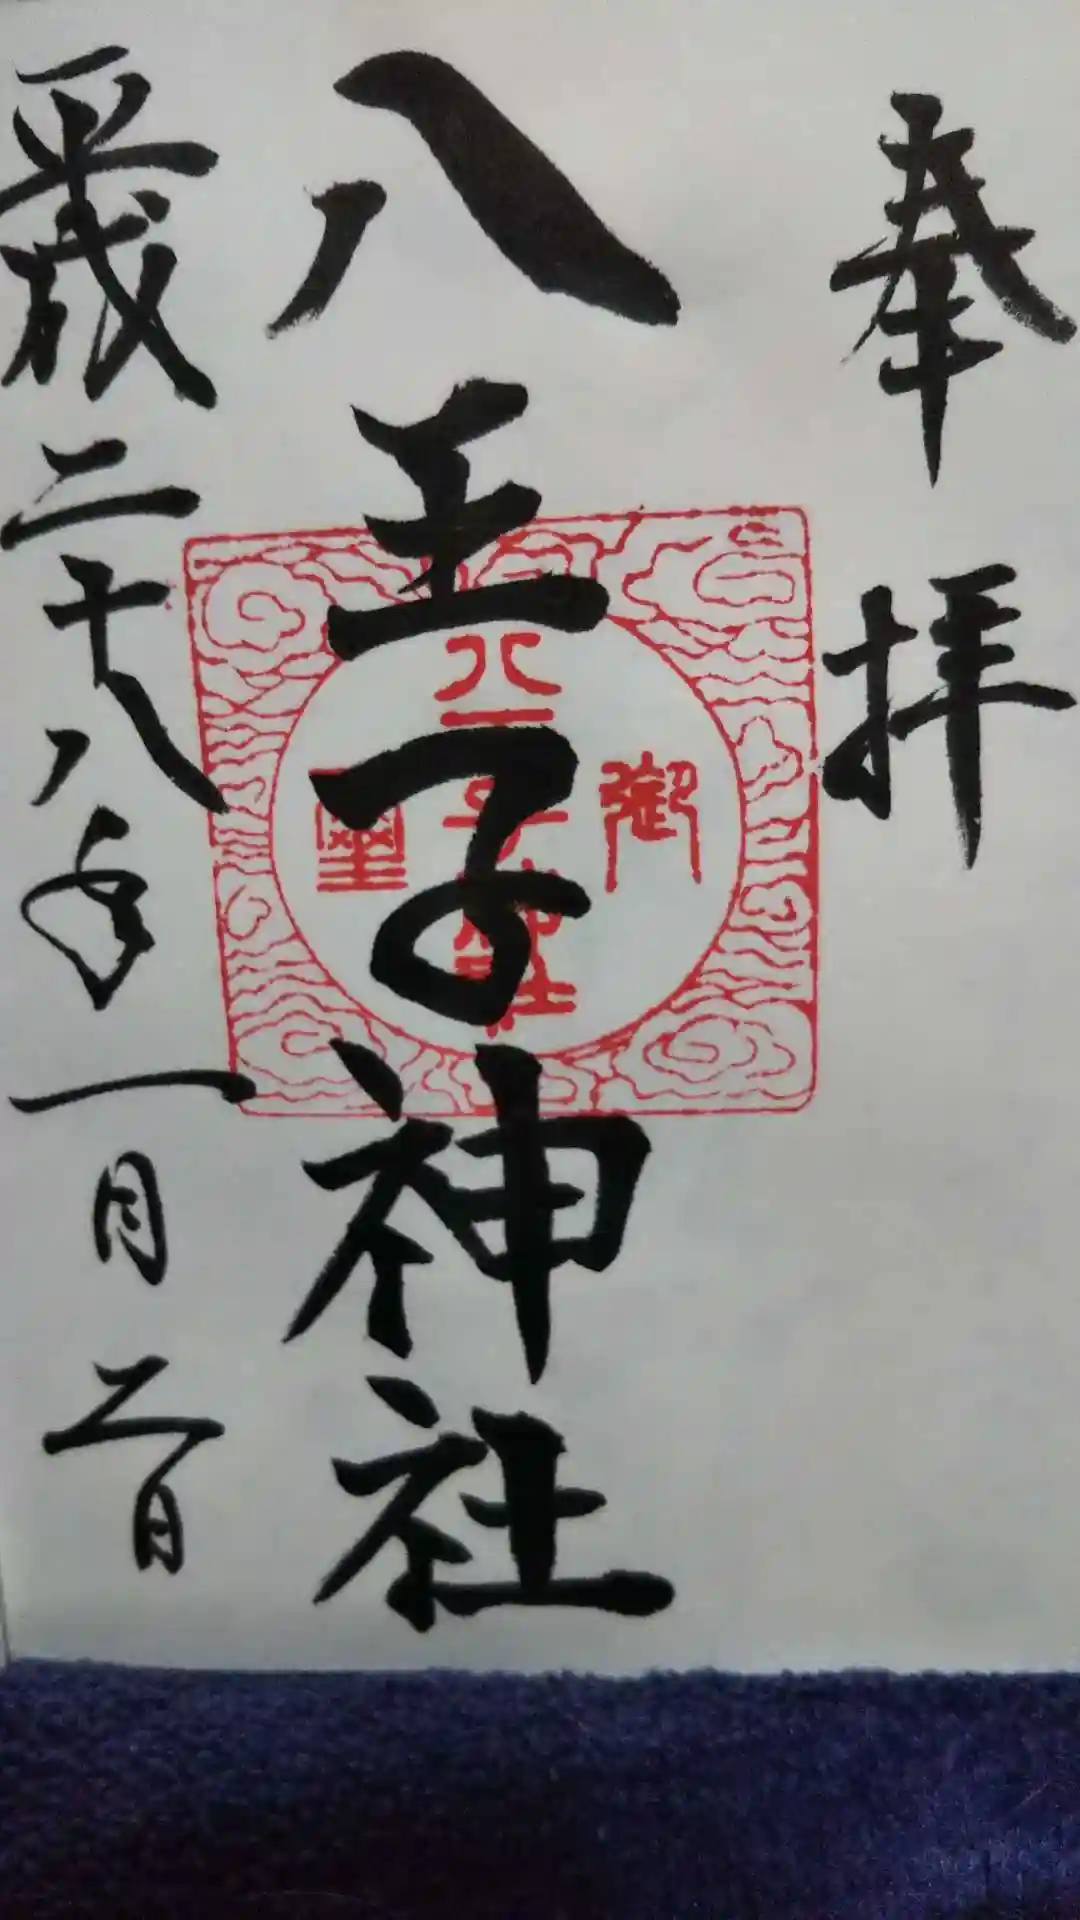 奉拝
八王子神社
御
八王子神社
璽
平成二十八年一月二日